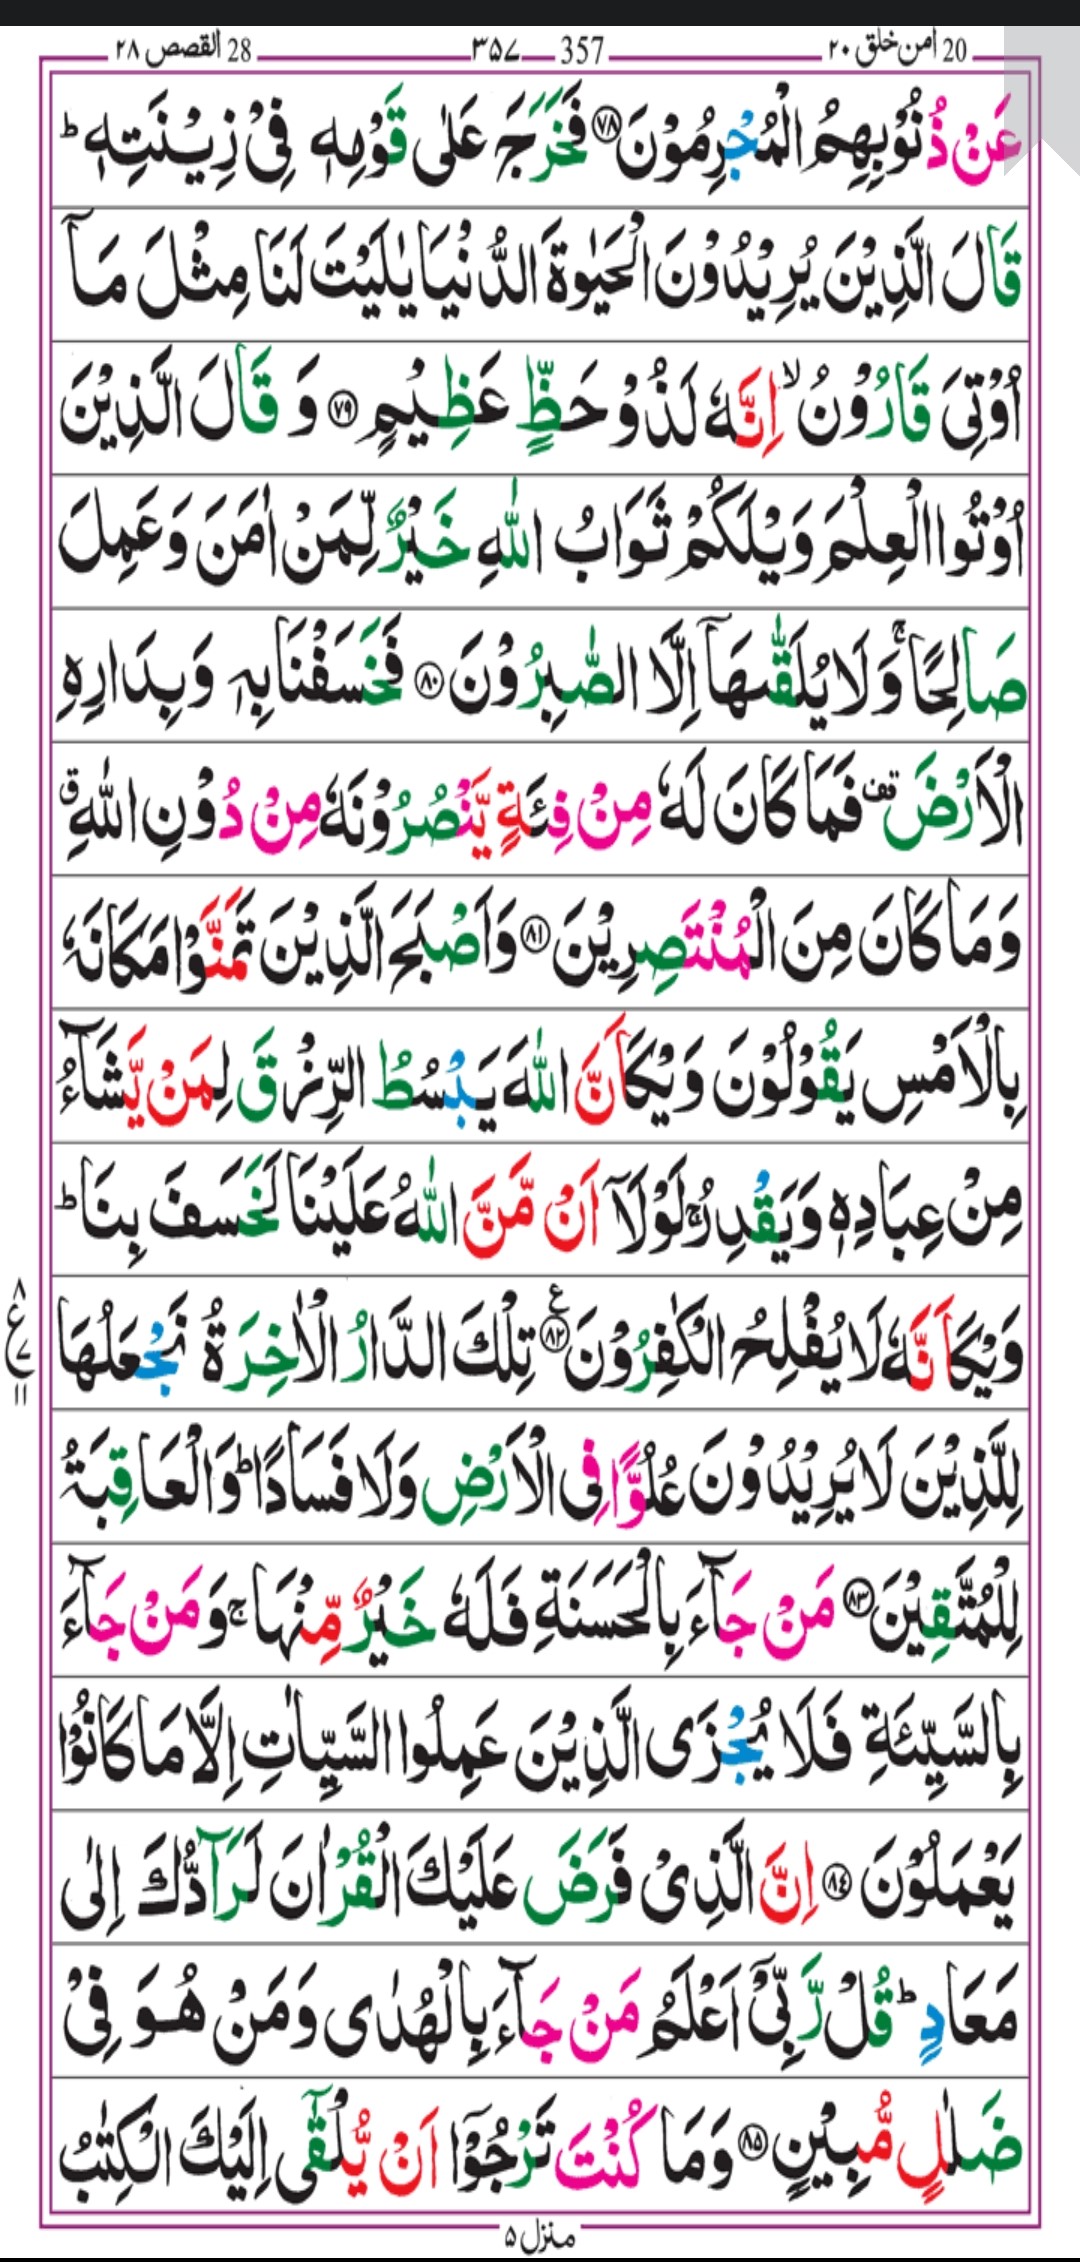 20 امن خلق ٢٠ 357 ٣۵۷ 28 القصص ٢٨
عَنْ ذُنُوْبِهِمُ الْمُجْرِمُوْنَ ﴿۷۸﴾ فَخَرَجَ عَلٰى قَوْمِهٖ فِىْ زِيْنَتِهٖ ؕ
قَالَ الَّذِيْنَ يُرِيْدُوْنَ الْحَيٰوةَ الدُّنْيَا يٰلَيْتَ لَنَا مِثْلَ مَاۤ
اُوْتِىَ قَارُوْنُ ۙ اِنَّهٗ لَذُوْ حَظٍّ عَظِيْمٍ ﴿۷۹﴾ وَ قَالَ الَّذِيْنَ
اُوْتُوا الْعِلْمَ وَيْلَكُمْ ثَوَابُ اللّٰهِ خَيْرٌ لِّمَنْ اٰمَنَ وَعَمِلَ
صَالِحًا ۚ وَلَا يُلَقّٰىهَاۤ اِلَّا الصّٰبِرُوْنَ ﴿۸۰﴾ فَخَسَفْنَا بِهٖ وَبِدَارِهِ
الْاَرْضَ قف فَمَا كَانَ لَهٗ مِنْ فِئَةٍ يَّنْصُرُوْنَهٗ مِنْ دُوْنِ اللّٰهِ ق
وَمَا كَانَ مِنَ الْمُنْتَصِرِيْنَ ﴿۸۱﴾ وَاَصْبَحَ الَّذِيْنَ تَمَنَّوْا مَكَانَهٗ
بِالْاَمْسِ يَقُوْلُوْنَ وَيْكَاَنَّ اللّٰهَ يَبْسُطُ الرِّزْقَ لِمَنْ يَّشَآءُ
مِنْ عِبَادِهٖ وَيَقْدِرُ ۚ لَوْلَاۤ اَنْ مَّنَّ اللّٰهُ عَلَيْنَا لَخَسَفَ بِنَا ؕ
وَيْكَاَنَّهٗ لَا يُفْلِحُ الْكٰفِرُوْنَ ﴿۸۲﴾ ع تِلْكَ الدَّارُ الْاٰخِرَةُ نَجْعَلُهَا
٨ ع ٧ ١١
لِلَّذِيْنَ لَا يُرِيْدُوْنَ عُلُوًّا فِى الْاَرْضِ وَلَا فَسَادًا ؕ وَالْعَاقِبَةُ
لِلْمُتَّقِيْنَ ﴿۸۳﴾ مَنْ جَآءَ بِالْحَسَنَةِ فَلَهٗ خَيْرٌ مِّنْهَا ۚ وَمَنْ جَآءَ
بِالسَّيِّئَةِ فَلَا يُجْزَى الَّذِيْنَ عَمِلُوا السَّيِّاٰتِ اِلَّا مَا كَانُوْا
يَعْمَلُوْنَ ﴿۸٤﴾ اِنَّ الَّذِىْ فَرَضَ عَلَيْكَ الْقُرْاٰنَ لَرَآدُّكَ اِلٰى
مَعَادٍ ؕ قُلْ رَّبِّىْۤ اَعْلَمُ مَنْ جَآءَ بِالْهُدٰى وَمَنْ هُوَ فِىْ
ضَلٰلٍ مُّبِيْنٍ ﴿۸۵﴾ وَمَا كُنْتَ تَرْجُوْۤا اَنْ يُّلْقٰٓى اِلَيْكَ الْكِتٰبُ
منزل ۵